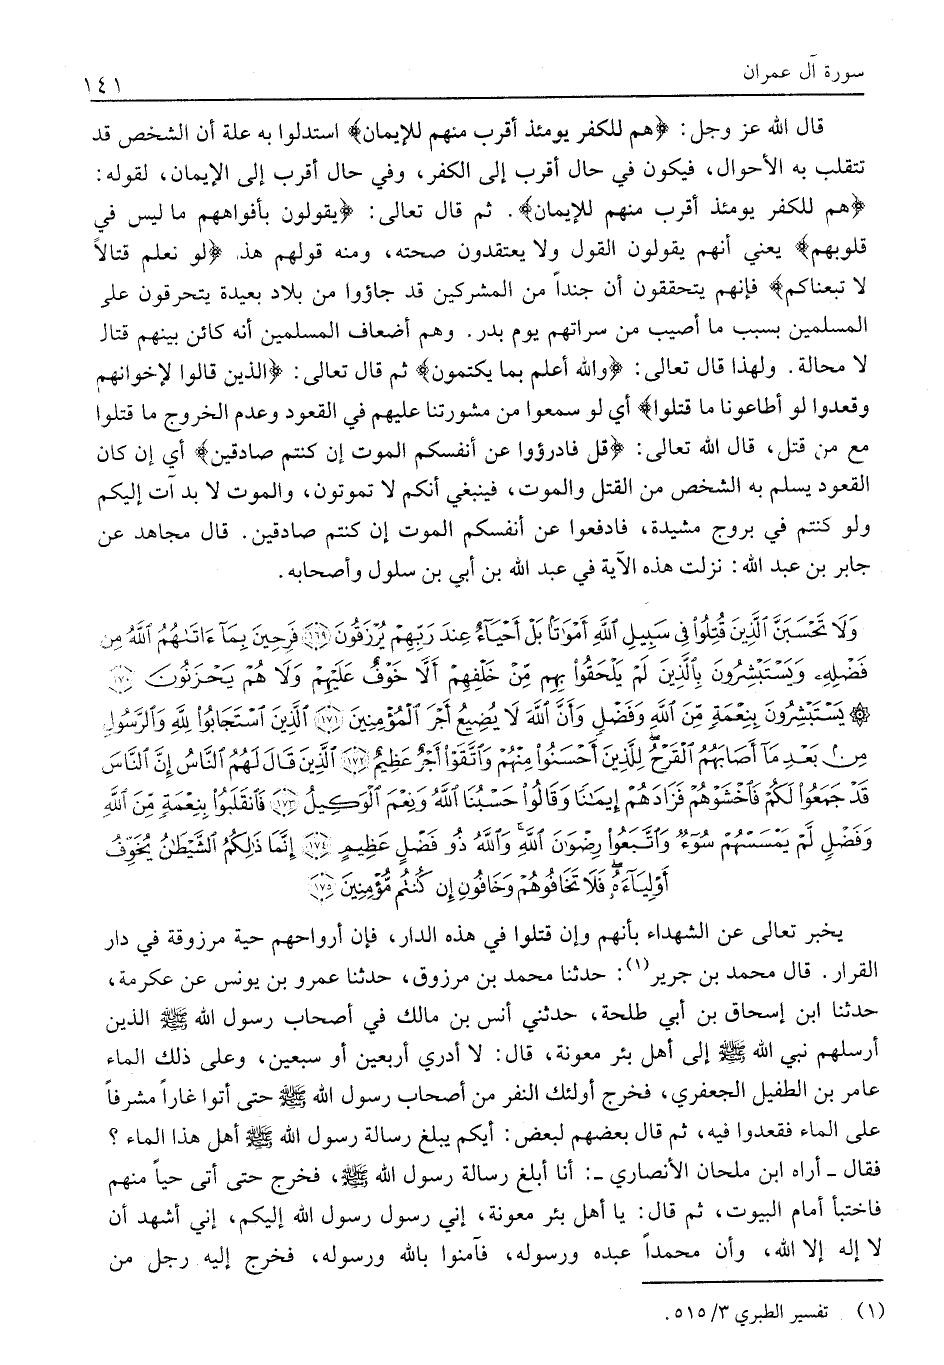 سورة آل عمران
١٤١
قال الله عز وجل: ﴿هم للكفر يومئذ أقرب منهم للإيمان﴾ استدلوا به علة أن الشخص قد
تتقلب به الأحوال، فيكون في حال أقرب إلى الكفر، وفي حال أقرب إلى الإيمان، لقوله:
﴿هم للكفر يومئذ أقرب منهم للإيمان﴾. ثم قال تعالى: ﴿يقولون بأفواههم ما ليس في
قلوبهم﴾ يعني أنهم يقولون القول ولا يعتقدون صحته، ومنه قولهم هذ ﴿لو نعلم قتالاً
لا تبعناكم﴾ فإنهم يتحققون أن جنداً من المشركين قد جاؤوا من بلاد بعيدة يتحرقون على
المسلمين بسبب ما أصيب من سراتهم يوم بدر. وهم أضعاف المسلمين أنه كائن بينهم قتال
لا محالة. ولهذا قال تعالى: ﴿والله أعلم بما يكتمون﴾ ثم قال تعالى: ﴿الذين قالوا لإخوانهم
وقعدوا لو أطاعونا ما قتلوا﴾ أي لو سمعوا من مشورتنا عليهم في القعود وعدم الخروج ما قتلوا
مع من قتل، قال الله تعالى: ﴿قل فادرؤوا عن أنفسكم الموت إن كنتم صادقين﴾ أي إن كان
القعود يسلم به الشخص من القتل والموت، فينبغي أنكم لا تموتون، والموت لا بد آت إليكم
ولو كنتم في بروج مشيدة، فادفعوا عن أنفسكم الموت إن كنتم صادقين. قال مجاهد عن
جابر بن عبد الله: نزلت هذه الآية في عبد الله بن أبي بن سلول وأصحابه.
وَلَا تَحْسَبَنَّ الَّذِينَ قُتِلُوا فِي سَبِيلِ اللَّهِ أَمْوَاتًا بَلْ أَحْيَاءٌ عِندَ رَبِّهِمْ يُرْزَقُونَ ﴿١٦٩﴾ فَرِحِينَ بِمَا ءَاتَىٰهُمُ اللَّهُ مِن
فَضْلِهِۦ وَيَسْتَبْشِرُونَ بِالَّذِينَ لَمْ يَلْحَقُوا بِهِم مِّنْ خَلْفِهِمْ أَلَّا خَوْفٌ عَلَيْهِمْ وَلَا هُمْ يَحْزَنُونَ ﴿١٧٠﴾
۞ يَسْتَبْشِرُونَ بِنِعْمَةٍ مِّنَ اللَّهِ وَفَضْلٍ وَأَنَّ اللَّهَ لَا يُضِيعُ أَجْرَ الْمُؤْمِنِينَ ﴿١٧١﴾ الَّذِينَ اسْتَجَابُوا لِلَّهِ وَالرَّسُولِ
مِنْ بَعْدِ مَا أَصَابَهُمُ الْقَرْحُ لِلَّذِينَ أَحْسَنُوا مِنْهُمْ وَاتَّقَوْا أَجْرٌ عَظِيمٌ ﴿١٧٢﴾ الَّذِينَ قَالَ لَهُمُ النَّاسُ إِنَّ النَّاسَ
قَدْ جَمَعُوا لَكُمْ فَاخْشَوْهُمْ فَزَادَهُمْ إِيمَانًا وَقَالُوا حَسْبُنَا اللَّهُ وَنِعْمَ الْوَكِيلُ ﴿١٧٣﴾ فَانقَلَبُوا بِنِعْمَةٍ مِّنَ اللَّهِ
وَفَضْلٍ لَّمْ يَمْسَسْهُمْ سُوءٌ وَاتَّبَعُوا رِضْوَانَ اللَّهِ وَاللَّهُ ذُو فَضْلٍ عَظِيمٍ ﴿١٧٤﴾ إِنَّمَا ذَٰلِكُمُ الشَّيْطَانُ يُخَوِّفُ
أَوْلِيَاءَهُ فَلَا تَخَافُوهُمْ وَخَافُونِ إِن كُنتُم مُّؤْمِنِينَ ﴿١٧٥﴾
يخبر تعالى عن الشهداء بأنهم وإن قتلوا في هذه الدار، فإن أرواحهم حية مرزوقة في دار
القرار. قال محمد بن جرير(١): حدثنا محمد بن مرزوق، حدثنا عمرو بن يونس عن عكرمة،
حدثنا ابن إسحاق بن أبي طلحة، حدثني أنس بن مالك في أصحاب رسول الله ﷺ الذين
أرسلهم نبي الله ﷺ إلى أهل بئر معونة، قال: لا أدري أربعين أو سبعين، وعلى ذلك الماء
عامر بن الطفيل الجعفري، فخرج أولئك النفر من أصحاب رسول الله ﷺ حتى أتوا غاراً مشرفاً
على الماء فقعدوا فيه، ثم قال بعضهم لبعض: أيكم يبلغ رسالة رسول الله ﷺ أهل هذا الماء؟
فقال ـ أراه ابن ملحان الأنصاري ـ: أنا أبلغ رسالة رسول الله ﷺ، فخرج حتى أتى حياً منهم
فاختبأ أمام البيوت، ثم قال: يا أهل بئر معونة، إني رسول رسول الله إليكم، إني أشهد أن
لا إله إلا الله، وأن محمداً عبده ورسوله، فآمنوا بالله ورسوله، فخرج إليه رجل من
(١) تفسير الطبري ٣/ ٥١٥.